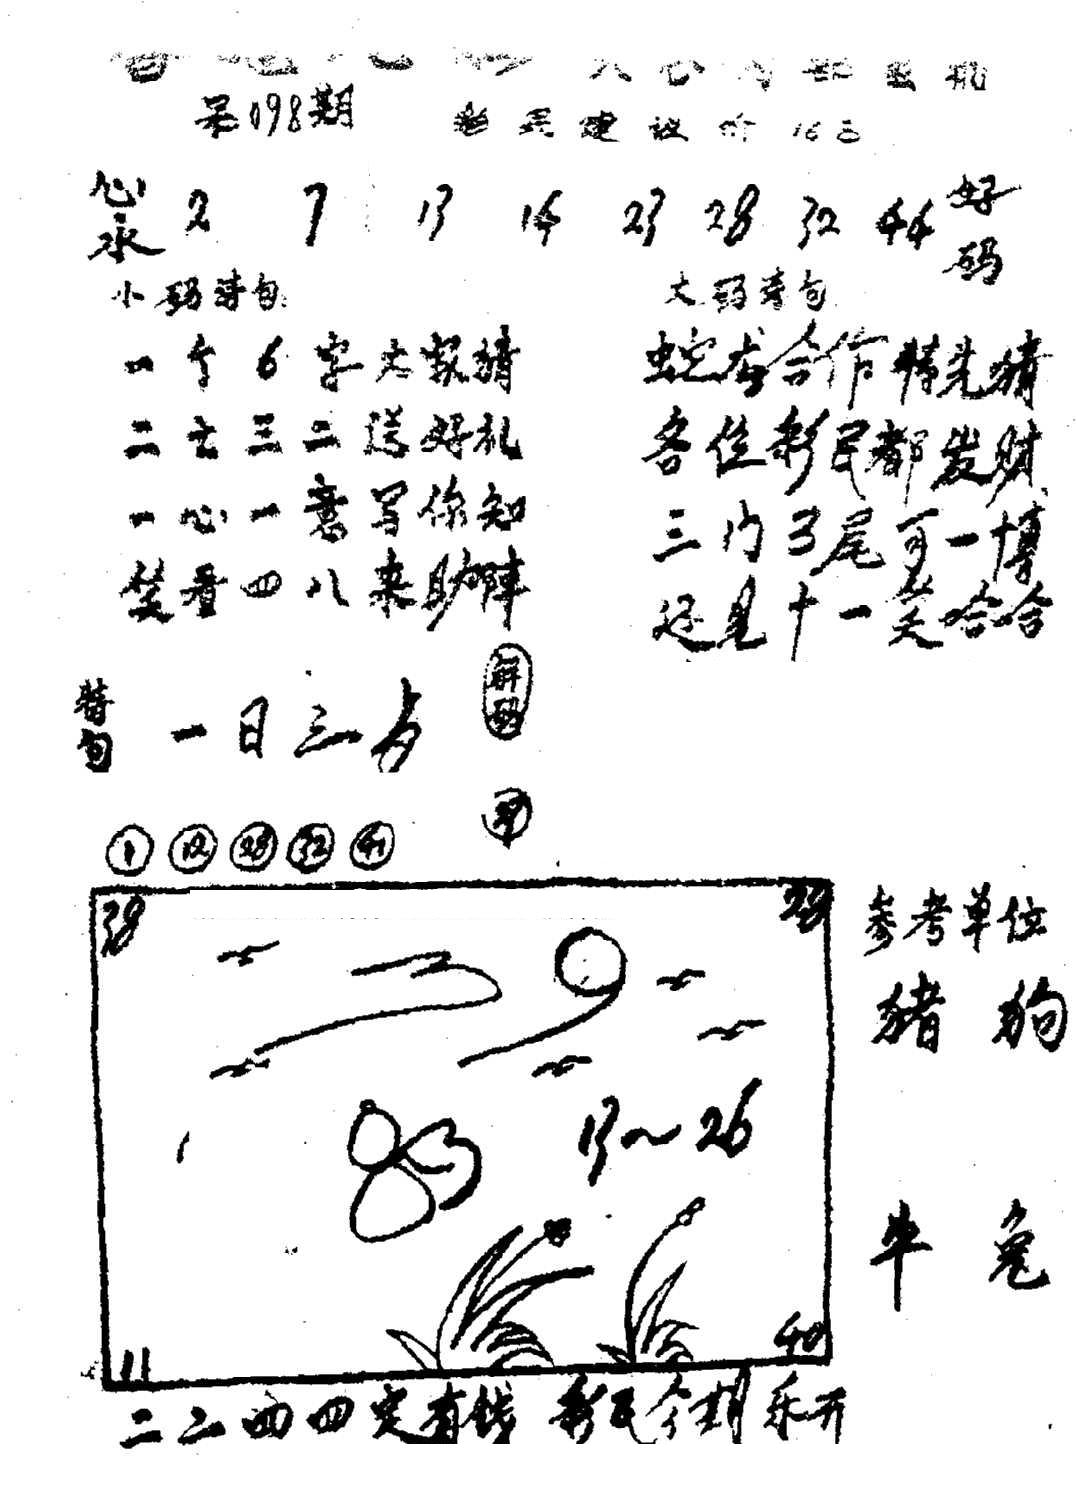 第098期
彩民建议价
心水 2 7 13 14 23 28 32 44 好码
小码诗句 大码诗句
一个6字大家猜 蛇龙合作特先猜
二七三二送好礼 各位彩民都发财
一心一意写你知 三门3尾可一博
笑看四八来助阵 还是十一笑哈哈
特句 一日三 解码
1 12 28 32 41
38 28
参考单位
猪 狗
13~26
牛 兔
11 40
二二四四定有钱 彩民今期乐开